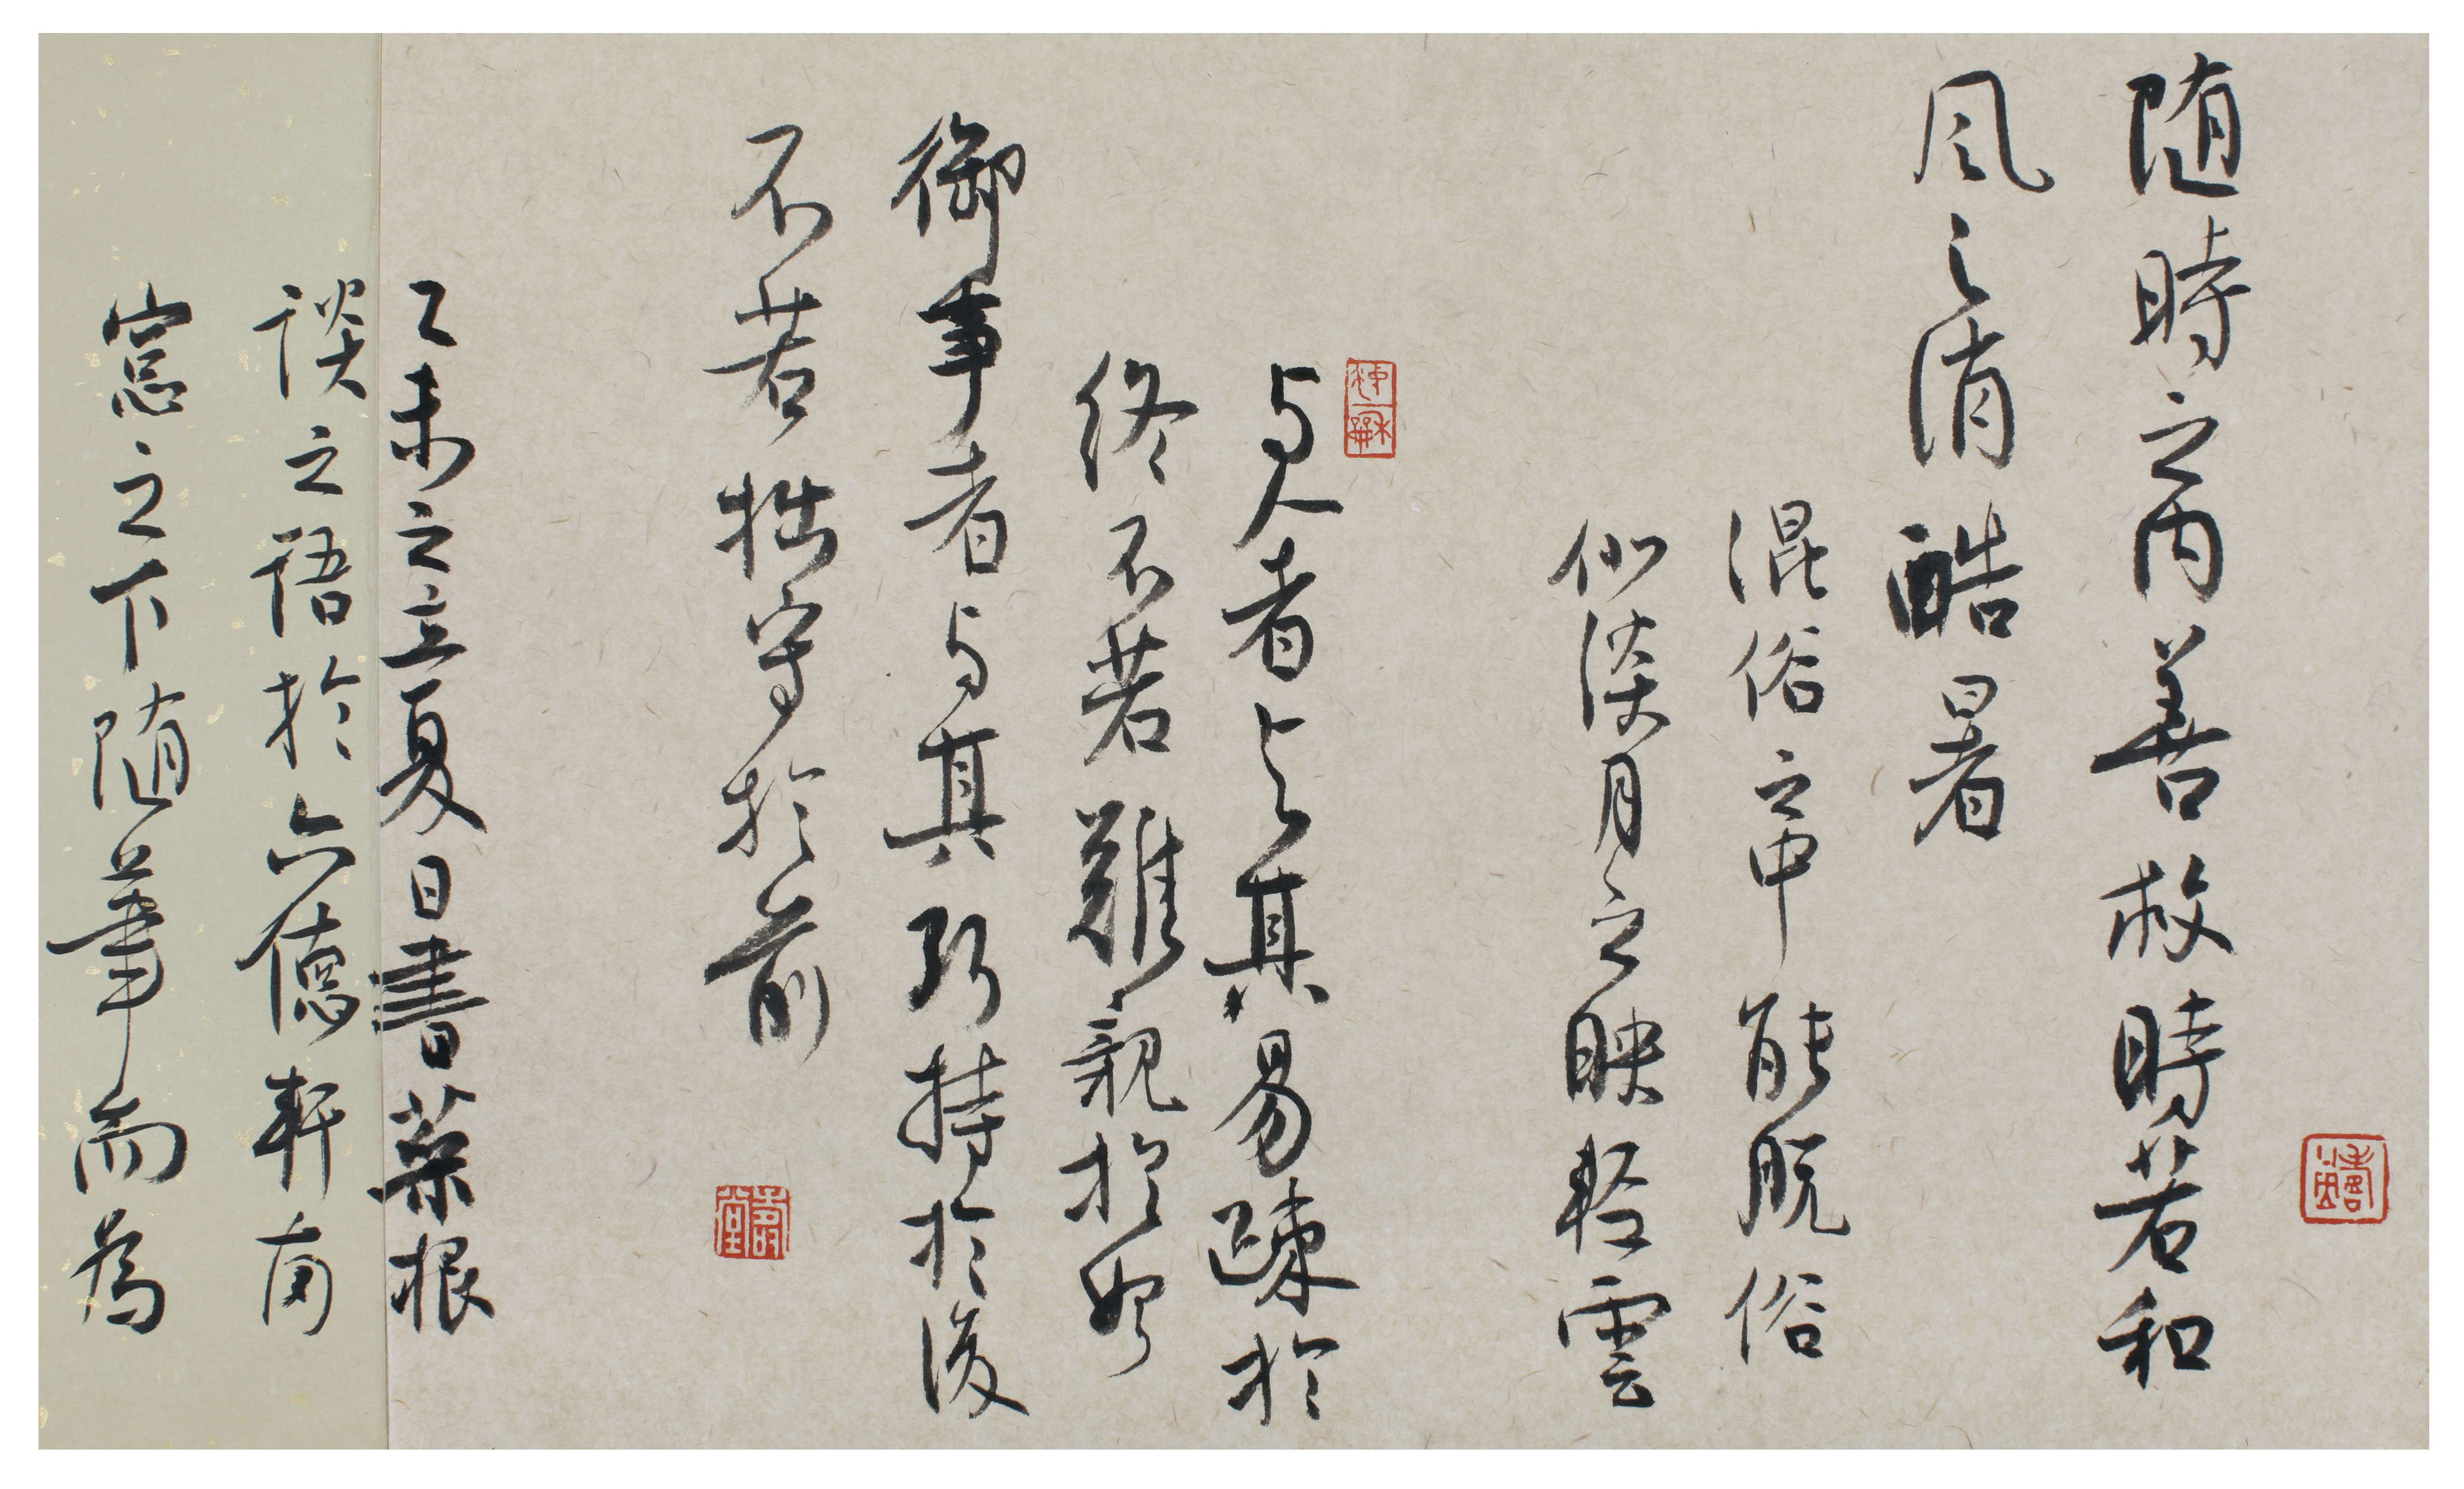 随時之内善救時若和
風之消酷暑
混俗之中能脱俗
似淡月之映軽雲
与人者与其易疎於
終不若難親於始
御事者与其巧持於後
不若拙守於前
乙未之立夏日書菜根
談之語於六德軒南
窓之下随筆而為